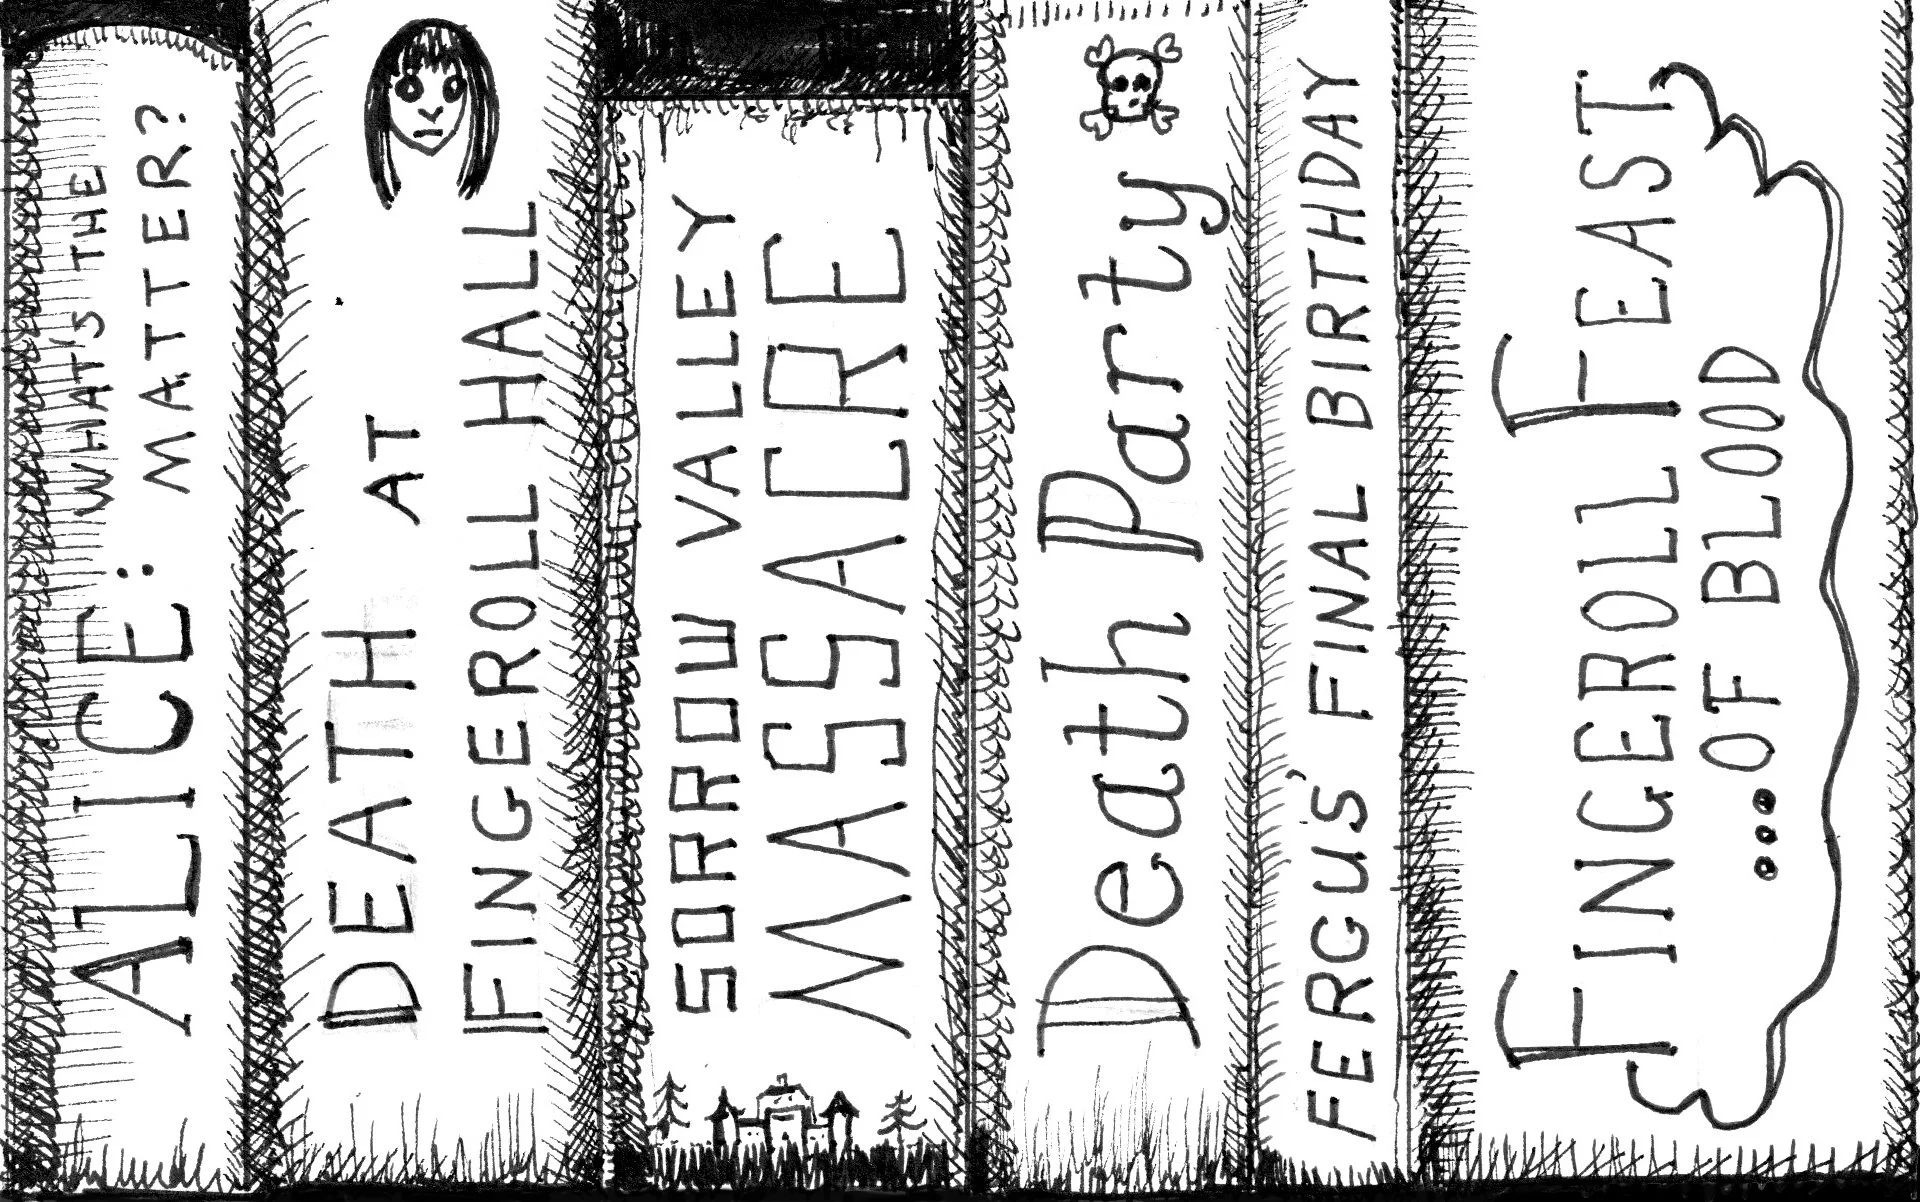 ALICE: WHAT'S THE
MATTER?
DEATH AT
FINGEROLL HALL
SORROW VALLEY
MASSACRE
Death Party
FERGUS' FINAL BIRTHDAY
FINGEROLL FEAST
...OF BLOOD